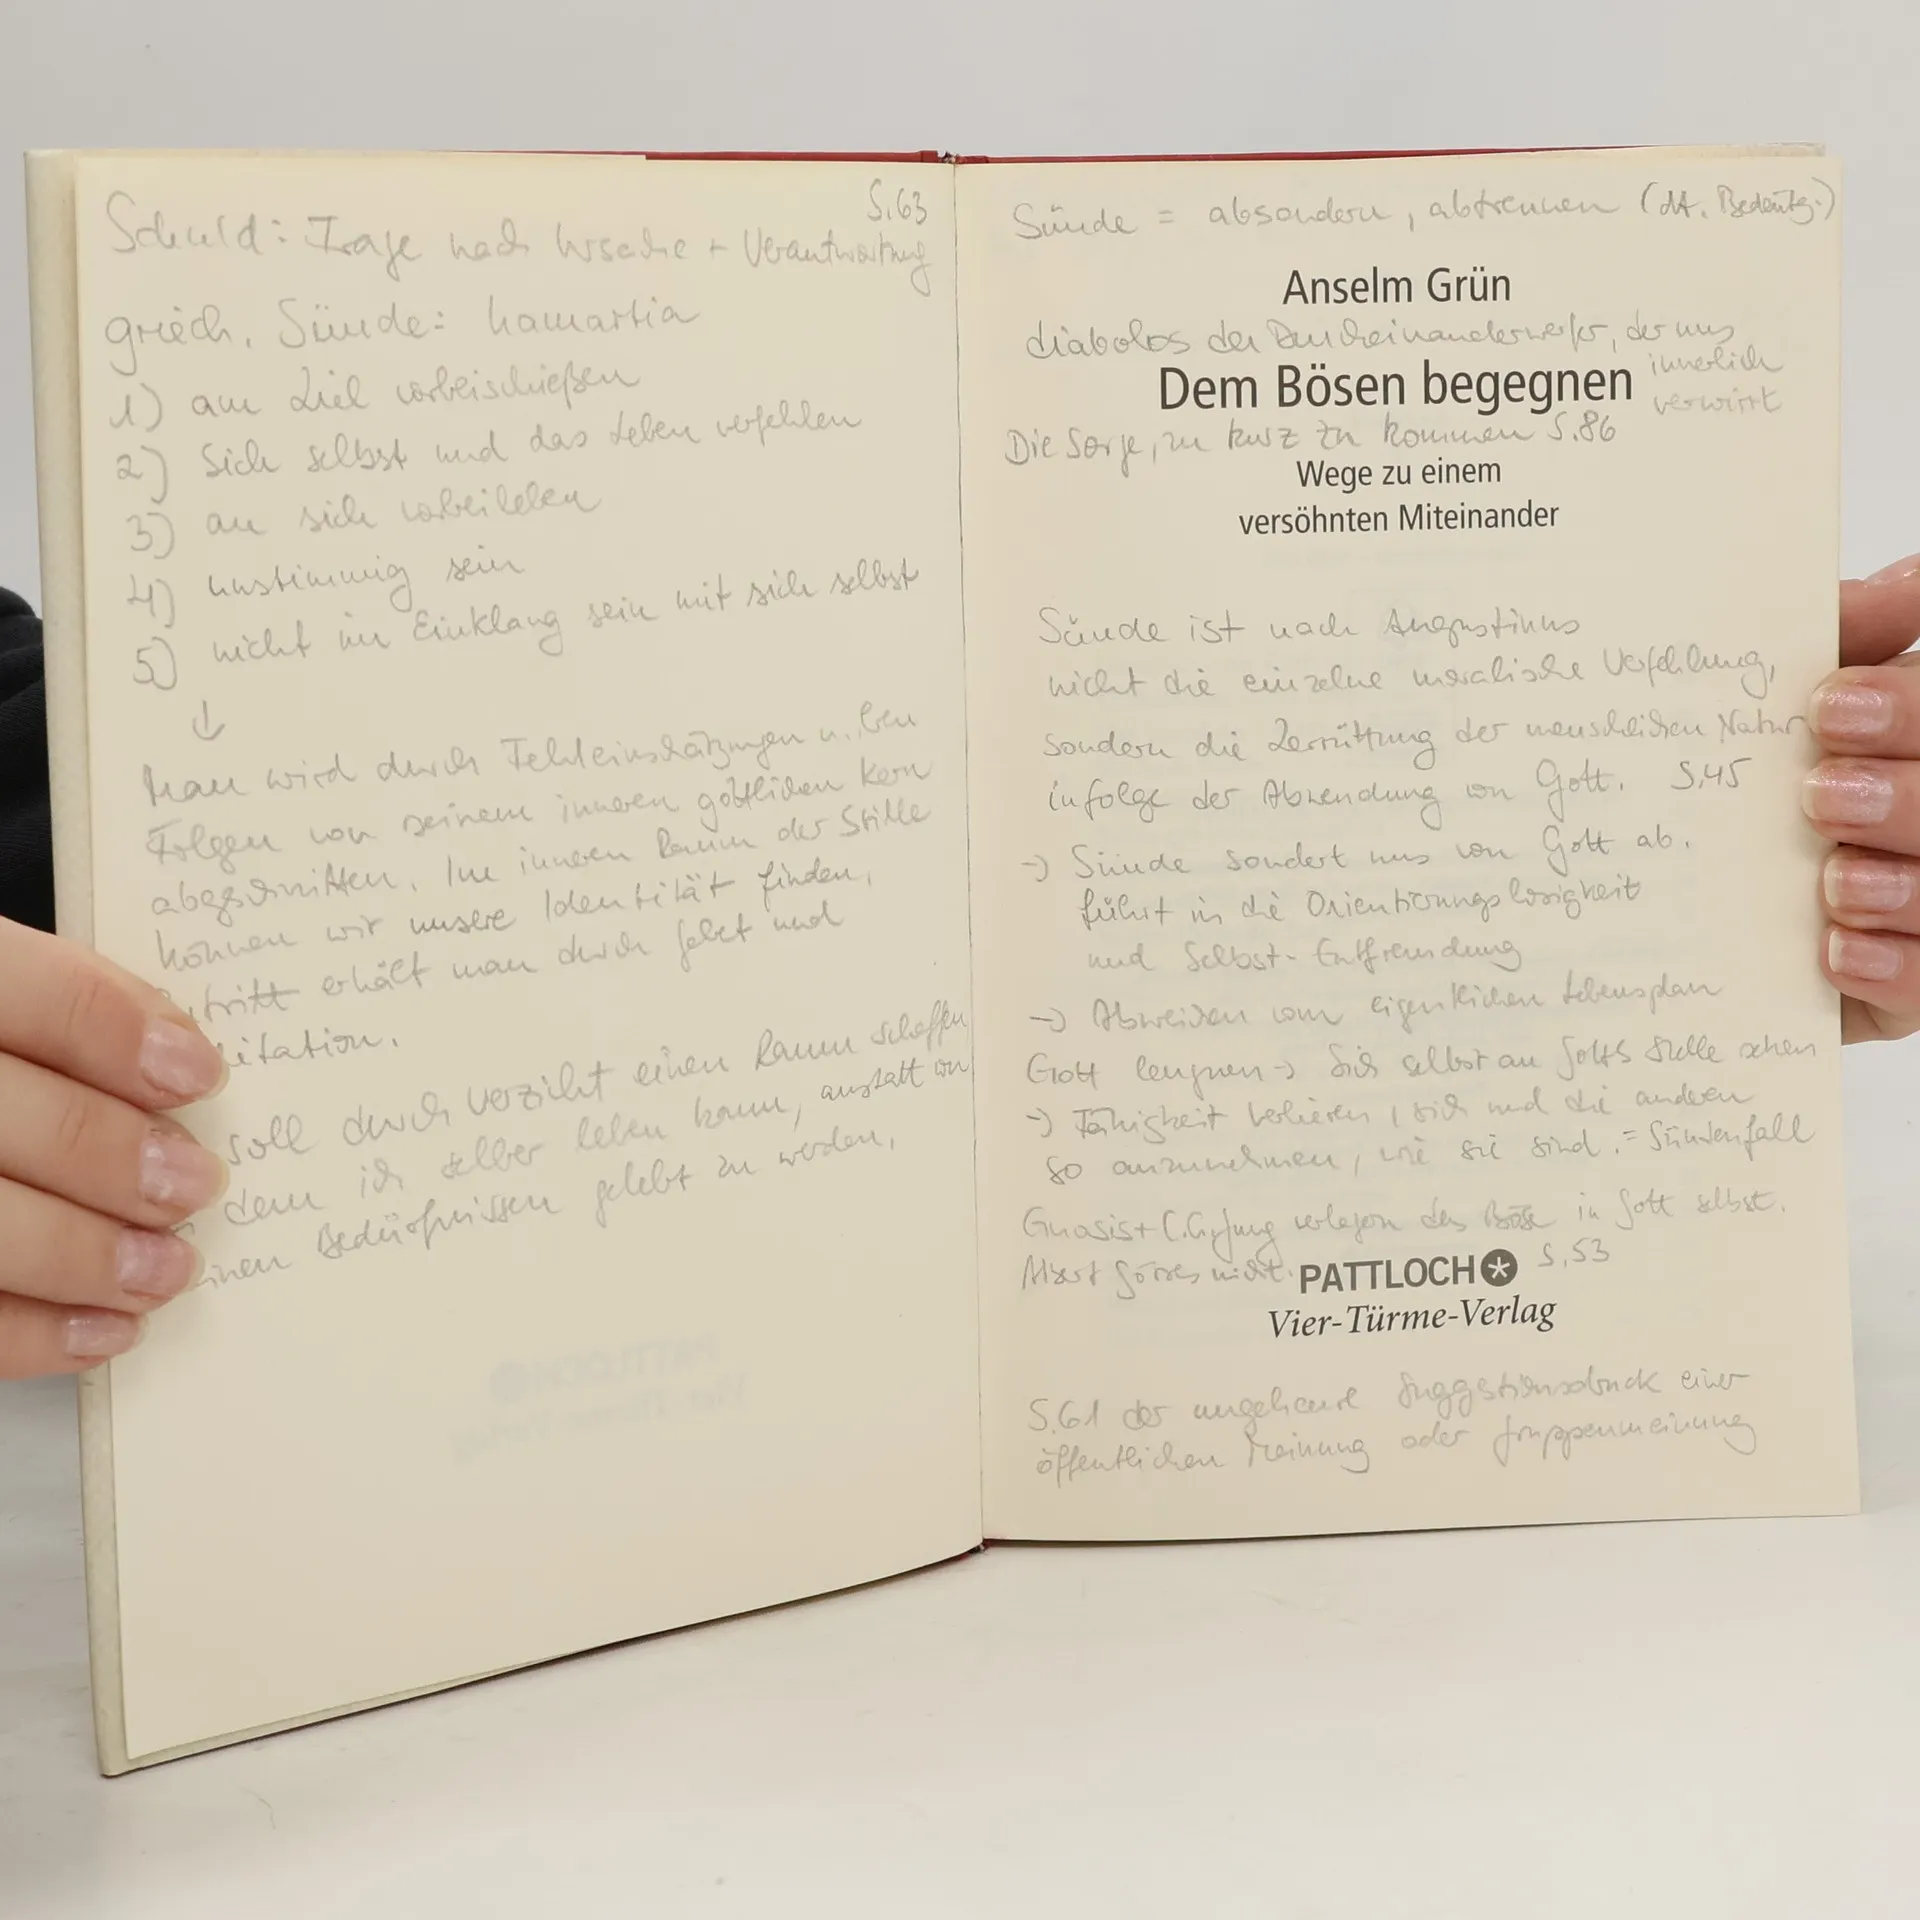 S.63
Schuld: Frage nach Ursache + Verantwortung
griech. Sünde: hamartia
1) am Ziel vorbeischießen
2) sich selbst und das Leben verfehlen
3) an sich vorbeileben
4) unstimmig sein
5) nicht im Einklang sein mit sich selbst
↓
Man wird durch Fehleinschätzungen u.
Folgen von seinem inneren göttlichen Kern
abgeschnitten. Im inneren Raum der Stille
können wir unsere Identität finden,
erhält man durch Gebet und
soll durch Verzicht einen Raum schaffen
dem ich selber leben kann, anstatt von
Bedürfnissen gelebt zu werden.
Sünde = absondern, abtrennen (dt. Bedeutg.)
Anselm Grün
diabolos der Durcheinanderwerfer, der uns
innerlich
Dem Bösen begegnen
verwirrt
Die Sorge, zu kurz zu kommen S.86
Wege zu einem
versöhnten Miteinander
Sünde ist nach Augustinus
nicht die einzelne moralische Verfehlung,
sondern die Zerrüttung der menschlichen Natur
infolge der Abwendung von Gott. S.45
-> Sünde sondert uns von Gott ab.
führt in die Orientierungslosigkeit
und Selbst-Entfremdung
-> Abweichen vom eigentlichen Lebensplan
Gott leugnen -> Sich selbst an Gotts Stelle sehen
-> Fähigkeit verlieren, sich und die anderen
so anzunehmen, wie sie sind. = Sündenfall
Gnosis + C.G. Jung verlegen das Böse in Gott selbst.
Albert Görres nicht. S.53
PATTLOCH
Vier-Türme-Verlag
S.61 der ungeheure Suggestionsdruck einer
öffentlichen Meinung oder Gruppenmeinung